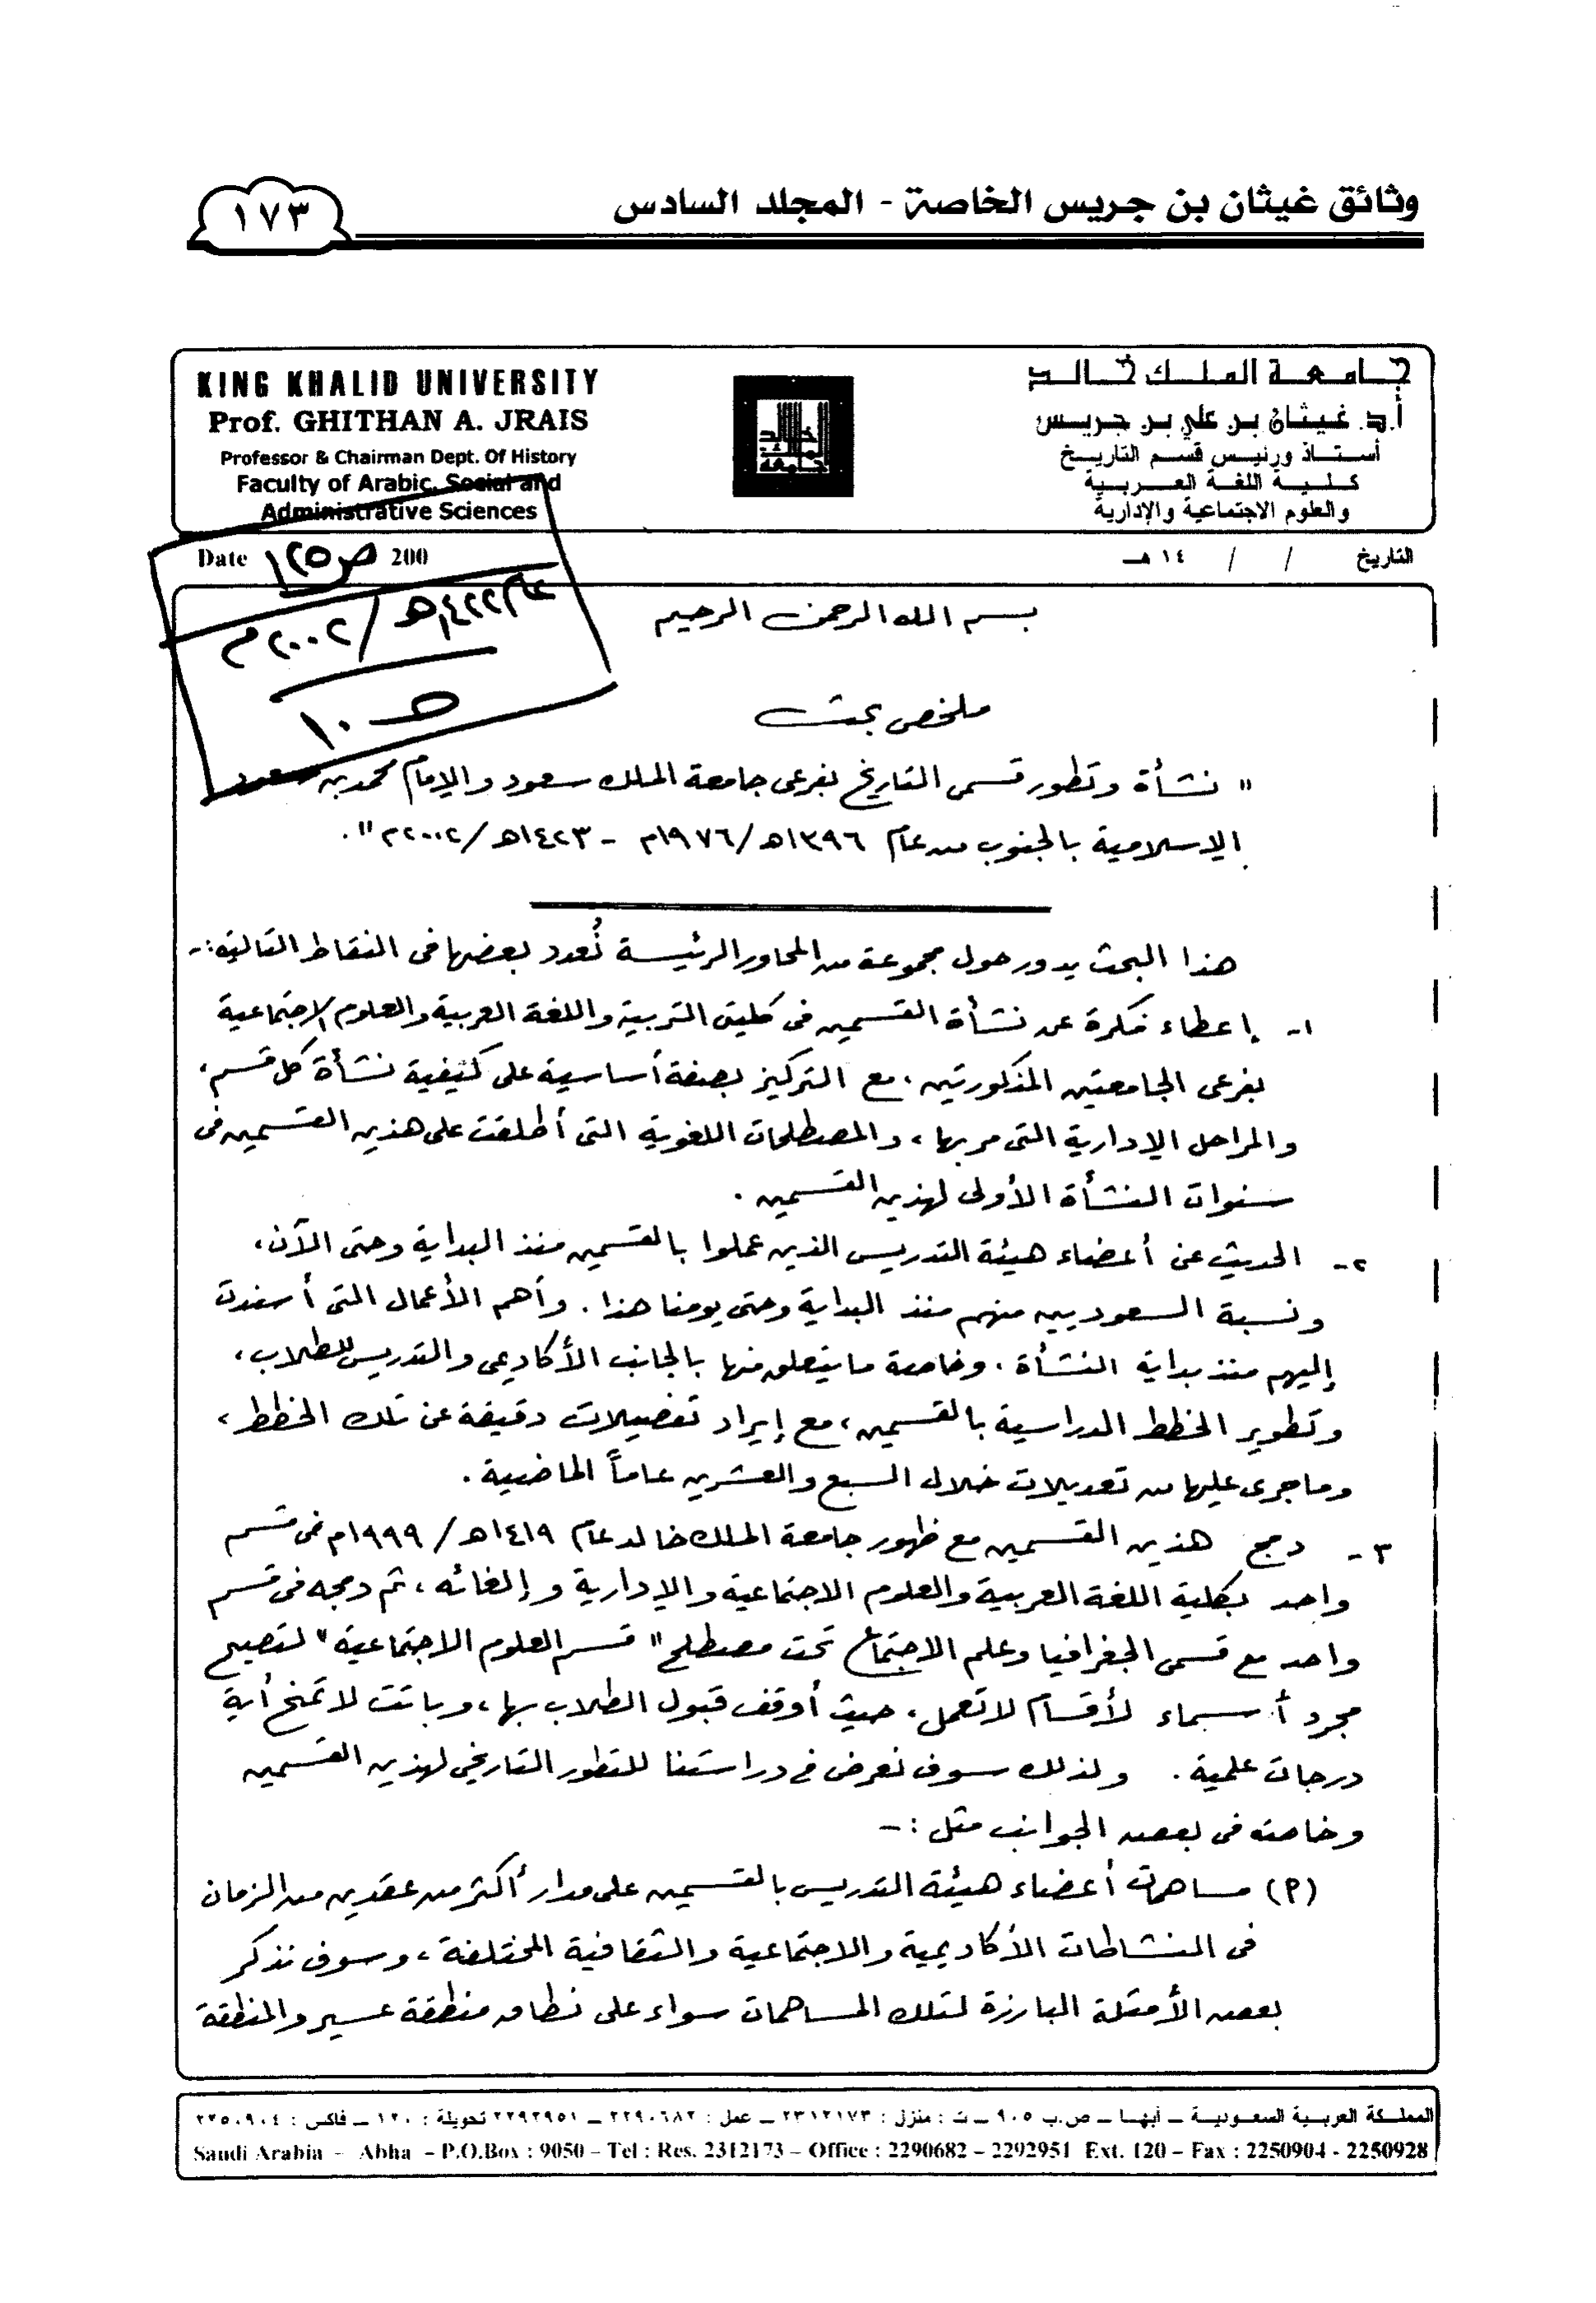 وثائق غيثان بن جريس الخاصة - المجلد السادس
١٧٣
جامعة الملك خالد
أ.د. غيثان بن علي بن جريس
أستاذ ورئيس قسم التاريخ
كلية اللغة العربية
والعلوم الاجتماعية والإدارية
KING KHALID UNIVERSITY
Prof. GHITHAN A. JRAIS
Professor & Chairman Dept. Of History
Faculty of Arabic, Social and
Administrative Sciences
التاريخ / / ١٤ هـ
Date 200
ص ١٢٥
عام ١٤٢٢هـ / ٢٠٠٢م
بسم الله الرحمن الرحيم
ملخص بحث
" نشأة وتطور قسمى التاريخ بفرعى جامعة الملك سعود والإمام محمد بن سعود
الإسلامية بالجنوب من عام ١٣٩٦هـ/١٩٧٦م - ١٤٢٣هـ/٢٠٠٢م ".
هذا البحث يدور حول مجموعة من المحاور الرئيسة نُعدد بعضها فى النقاط التالية:-
١- إعطاء فكرة عن نشأة القسمين فى كليتى التربية واللغة العربية والعلوم الاجتماعية
بفرعى الجامعتين المذكورتين، مع التركيز بصفة أساسية على كيفية نشأة كل قسم،
والمراحل الإدارية التى مر بها، والمصطلحات اللغوية التى أطلقت على هذين القسمين فى
سنوات النشأة الأولى لهذين القسمين.
٢- الحديث عن أعضاء هيئة التدريس الذين عملوا بالقسمين منذ البداية وحتى الآن،
ونسبة السعوديين منهم منذ البداية وحتى يومنا هذا. وأهم الأعمال التى أسندت
إليهم منذ بداية النشأة، وخاصة ما يتعلق منها بالجانب الأكاديمى والتدريس للطلاب،
وتطوير الخطط الدراسية بالقسمين، مع إيراد تفصيلات دقيقة عن تلك الخطط،
وما جرى عليها من تعديلات خلال السبع والعشرين عاماً الماضية.
٣- دمج هذين القسمين مع ظهور جامعة الملك خالد عام ١٤١٩هـ/ ١٩٩٩م فى قسم
واحد بكلية اللغة العربية والعلوم الاجتماعية والإدارية وإلغائه، ثم دمجه فى قسم
واحد مع قسمى الجغرافيا وعلم الاجتماع تحت مصطلح " قسم العلوم الاجتماعية " لتصبح
مجرد أسماء لأقسام لا تعمل، حيث أوقف قبول الطلاب بها، وباتت لا تمنح أية
درجات علمية. ولذلك سوف نعرض فى دراستنا للتطور التاريخي لهذين القسمين
وخاصة فى بعض الجوانب مثل :-
(أ) مساهمات أعضاء هيئة التدريس بالقسمين على مدار أكثر من عقدين من الزمان
فى النشاطات الأكاديمية والاجتماعية والثقافية المختلفة، وسوف نذكر
بعض الأمثلة البارزة لتلك المساهمات سواء على نطاق منطقة عسير والمنطقة
المملكة العربية السعودية – أبها – ص.ب ٩٠٥ – ت : منزل : ٢٣١٢١٧٣ – عمل : ٢٢٩٠٦٨٢ – ٢٢٩٢٩٥١ تحويلة : ١٢٠ – فاكس : ٢٢٥٠٩٠٤
Saudi Arabia – Abha – P.O.Box : 9050 – Tel : Res. 2312173 – Office : 2290682 – 2292951 Ext. 120 – Fax : 2250904 - 2250928